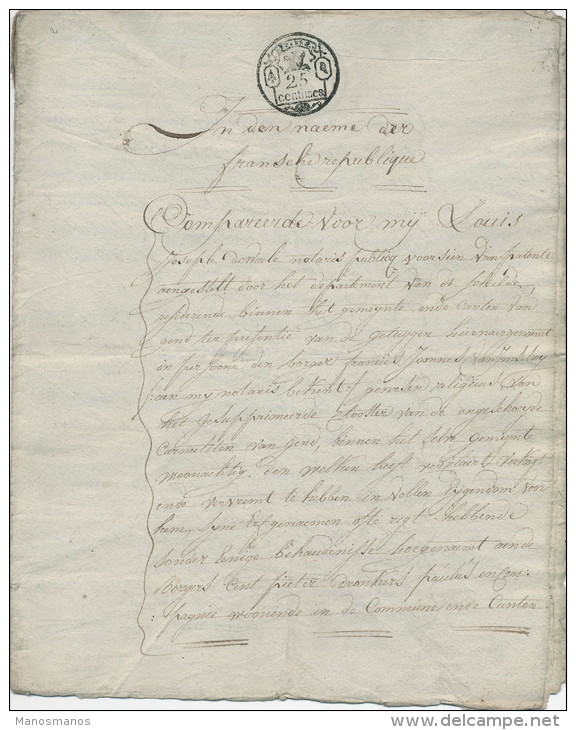 25
centimes
In den naeme der
fransche republique
Compareerde voor mij Louis
Joseph notaris publicq voorsien van patente
aengestelt door het departement van de schelde,
resideerende binnen het gemeynte ende Canton van
gend ter presentie van de getuygen hiernaergenaemt
in persoone den borger francies Joannes
aen my notaris bekent gewesen religieus van
het gesupprimeerde klooster van de ongeschoeyde
Carmeliten van Gend, binnen het selve gemeynte
woonachtig. den welken heeft verklaert verkogt
ende vervremt te hebben in vollen Eygendom voor
hem, syne Erfgenaemen ofte regt hebbende
sonder Eenige behaudenisse hoegenaemt aen de
borgers pieter paulus en Com:
:pagnie woonende in de Commune ende Canton
Manosmanos
delcampe.net